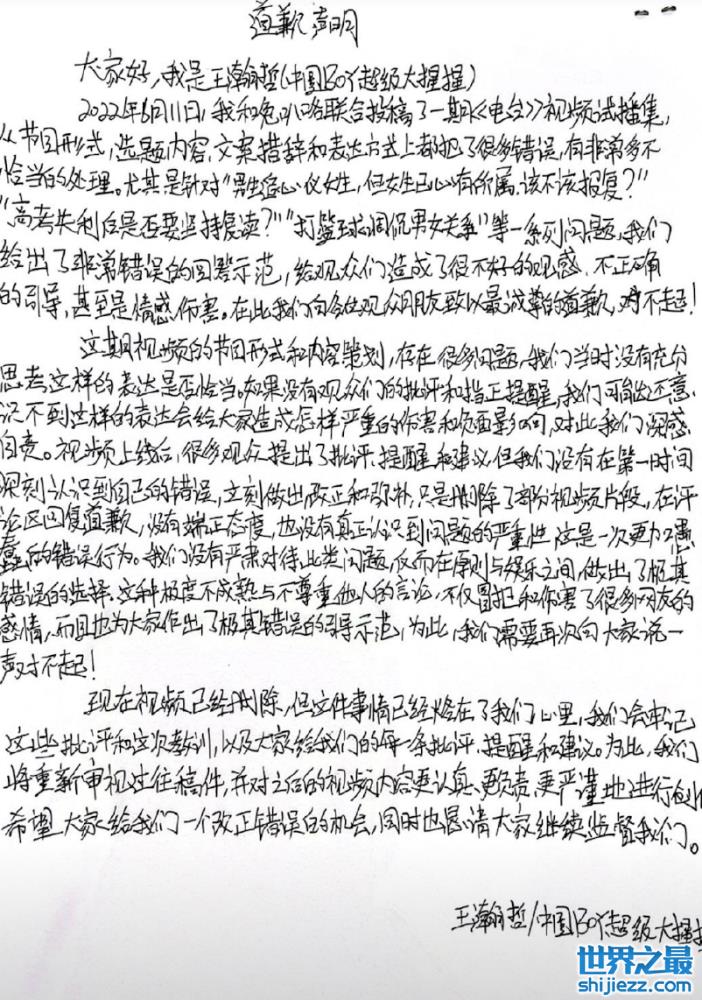 道歉声明
大家好,我是王瀚哲(中国BOY超级大猩猩)
2022年6月11日,我和兔叭咯联合投稿了一期《电台》视频试播集,
从节目形式,选题内容,文案措辞和表达方式上都犯了很多错误,有非常多不
恰当的处理。尤其是针对"男生追心仪女生,但女生已心有所属,该不该报复?"
"高考失利后是否要坚持复读?""打篮球调侃男女关系"等一系列问题,我们
给出了非常错误的回答示范,给观众们造成了很不好的观感、不正确
的引导,甚至是情感伤害。在此我们向各位观众朋友致以最诚挚的道歉,对不起!
这期视频的节目形式和内容策划,存在很多问题,我们当时没有充分
思考这样的表达是否恰当。如果没有观众们的批评和指正提醒,我们可能还意
识不到这样的表达会给大家造成怎样严重的伤害和负面影响,对此我们深感
自责。视频上线后,很多观众提出了批评、提醒和建议,但我们没有在第一时间
深刻认识到自己的错误,立刻做出改正和弥补,只是删除了部分视频片段,在评
论区回复道歉,没有端正态度,也没有真正认识到问题的严重性,这是一次更加愚
蠢的错误行为。我们没有严肃对待此类问题,反而在原则与娱乐之间,做出了极其
错误的选择,这种极度不成熟与不尊重他人的言论,不仅冒犯和伤害了很多网友的
感情,而且也为大家作出了极其错误的引导示范,为此,我们需要再次向大家说一
声对不起!
现在视频已经删除,但这件事情已经烙在了我们心里,我们会牢记
这些批评和这次教训,以及大家给我们的每一条批评、提醒和建议。为此,我们
将重新审视过往稿件,并对之后的视频内容更认真、更负责、更严谨地进行创作
希望大家给我们一个改正错误的机会,同时也恳请大家继续监督我们。
王瀚哲/中国BOY超级大猩猩
世界之最
shijiezz.com